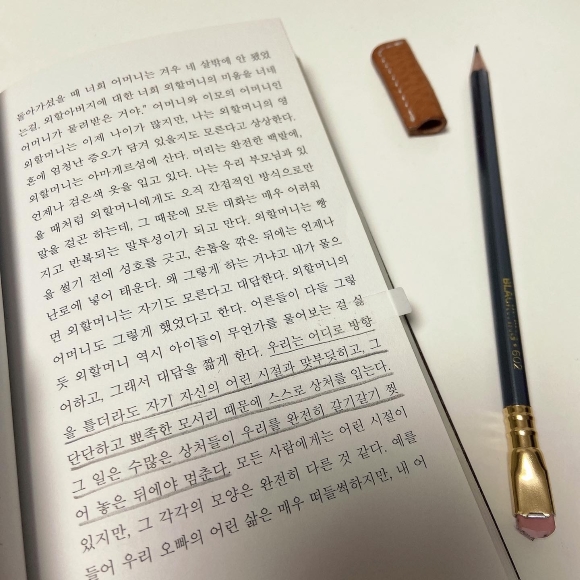 돌아가셨을 때 너희 어머니는 겨우 네 살밖에 안 됐었
는걸. 외할아버지에 대한 너희 외할머니의 미움을 너네
어머니가 물려받은 거야." 어머니와 이모의 어머니인
외할머니는 이제 나이가 많지만, 나는 외할머니의 영
혼에 엄청난 증오가 담겨 있을지도 모른다고 상상한다.
외할머니는 아마게르섬에 산다. 머리는 완전한 백발에,
언제나 검은색 옷을 입고 있다. 나는 우리 부모님과 있
을 때처럼 외할머니에게도 오직 간접적인 방식으로만
말을 걸곤 하는데, 그 때문에 모든 대화는 매우 어려워
지고 반복되는 말투성이가 되고 만다. 외할머니는 빵
을 썰기 전에 성호를 긋고, 손톱을 깎은 뒤에는 언제나
난로에 넣어 태운다. 왜 그렇게 하는 거냐고 내가 물으
면 외할머니는 자기도 모른다고 대답한다. 외할머니의
어머니도 그렇게 했었다고 한다. 어른들이 다들 그렇
듯 외할머니 역시 아이들이 무언가를 물어보는 걸 싫
어하고, 그래서 대답을 짧게 한다. 우리는 어디로 방향
을 틀더라도 자기 자신의 어린 시절과 맞부딪히고, 그
단단하고 뾰족한 모서리 때문에 스스로 상처를 입는다.
그 일은 수많은 상처들이 우리를 완전히 갈기갈기 찢
어 놓은 뒤에야 멈춘다. 모든 사람에게는 어린 시절이
있지만, 그 각각의 모양은 완전히 다른 것 같다. 예를
들어 우리 오빠의 어린 삶은 매우 떠들썩하지만, 내 어
602